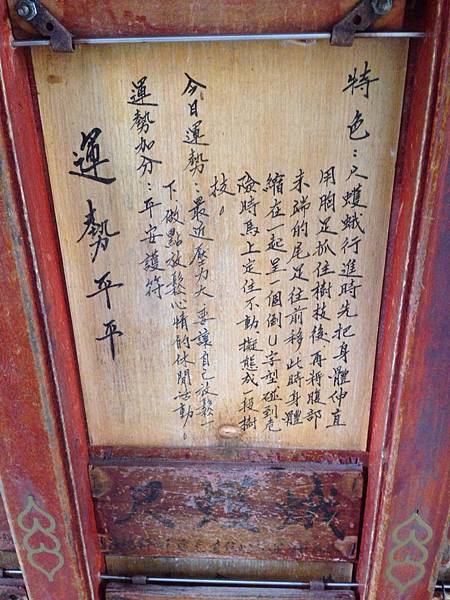 特色：尺蠖蛾行進時先把身體伸直
用胸足抓住樹枝後再將腹部
末端的尾足往前移此時身體
縮在一起呈一個倒U字型碰到危
險時馬上定住不動擬態成一根樹
枝。
今日運勢：最近壓力大要讓自己放鬆一
下做點放鬆心情的休閒活動。
運勢加分：平安護符
運勢平平
尺蠖蛾